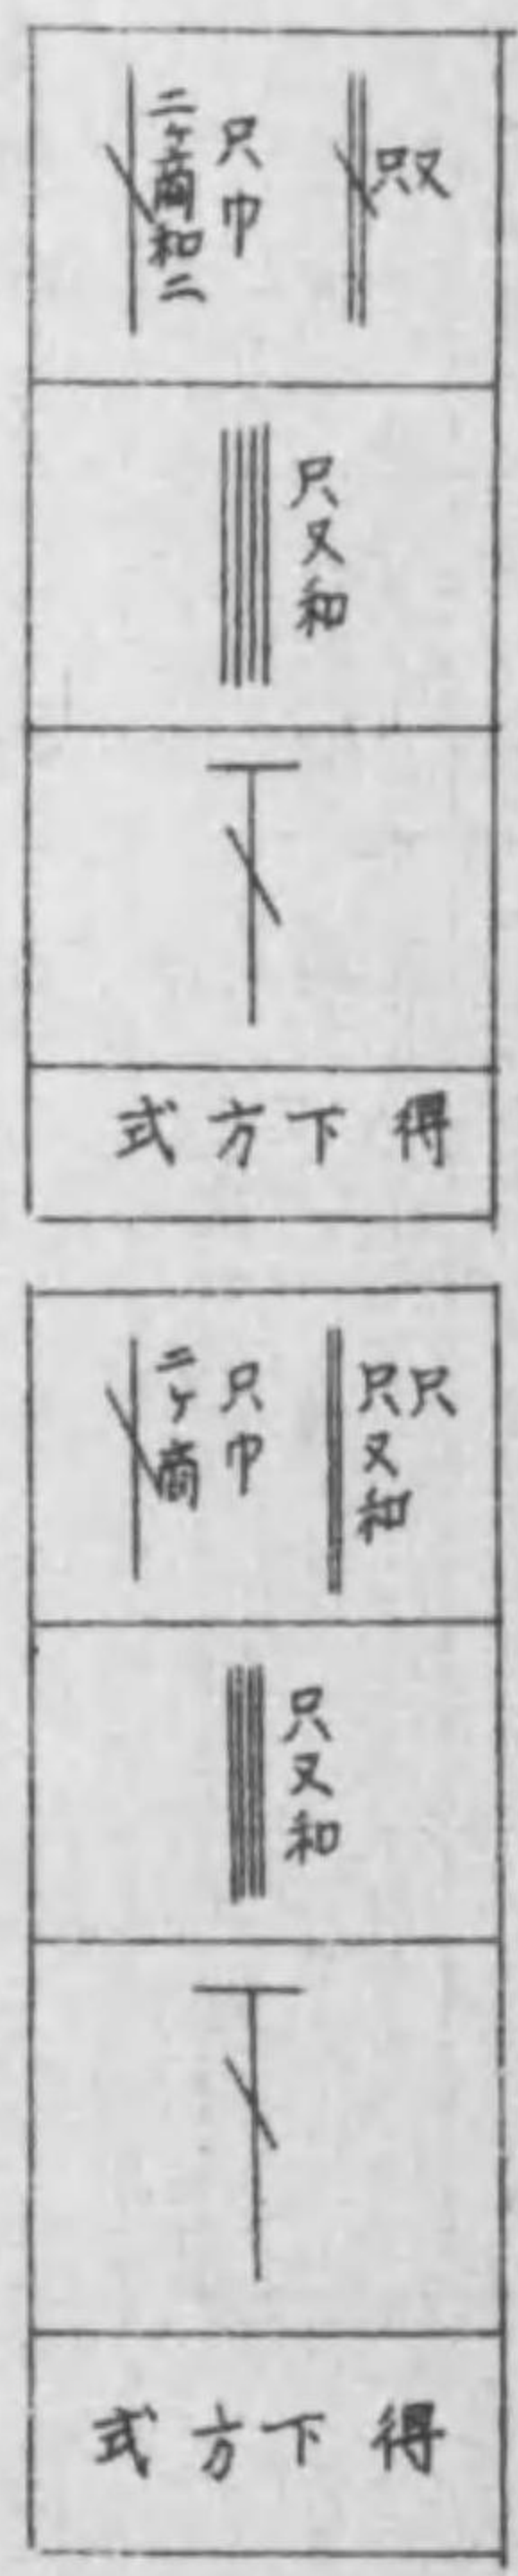 只又
只巾
二ケ商和二
只又和
得下方式
只
只又和
只巾
二ケ商
只又和
得下方式